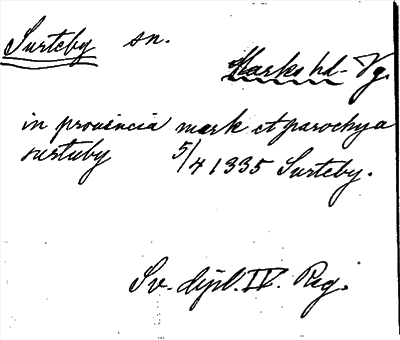 Surteby sn.
Marks hd. Vg.
in prouincia mark et parochya
surtuby 5/4 1335 Surteby.
Sv. dipl. IV. Reg.